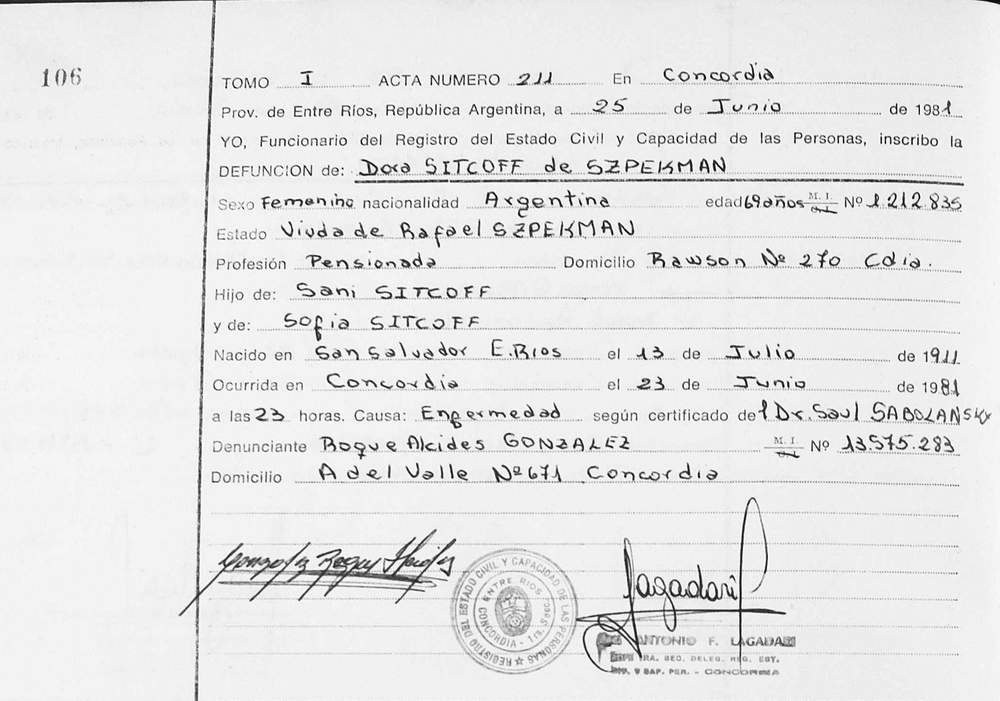 106
TOMO I ACTA NUMERO 211 En Concordia
Prov. de Entre Ríos, República Argentina, a 25 de Junio de 1981
YO, Funcionario del Registro del Estado Civil y Capacidad de las Personas, inscribo la
DEFUNCION de: Dora SITCOFF de SZPEKMAN
Sexo Femenino nacionalidad Argentina edad 69 años M. I. Nº 1.212.835
Estado Viuda de Rafael SZPEKMAN
Profesión Pensionada Domicilio Rawson Nº 270 Cdia.
Hijo de: Sani SITCOFF
y de: Sofia SITCOFF
Nacido en San Salvador E. Rios el 13 de Julio de 1911
Ocurrida en Concordia el 23 de Junio de 1981
a las 23 horas. Causa: Enfermedad según certificado del Dr. Saul SABOLANSKY
Denunciante Roque Alcides GONZALEZ M. I. Nº 13.575.283
Domicilio A del Valle Nº 671 Concordia
REGISTRO DEL ESTADO CIVIL Y CAPACIDAD DE LAS PERSONAS
ENTRE RIOS
CONCORDIA - 1ra. Secc.
Lagadari
ANTONIO F. LAGADARI
1RA. SEC. DELEG. REG. EST.
CIV. Y CAP. PER. - CONCORDIA